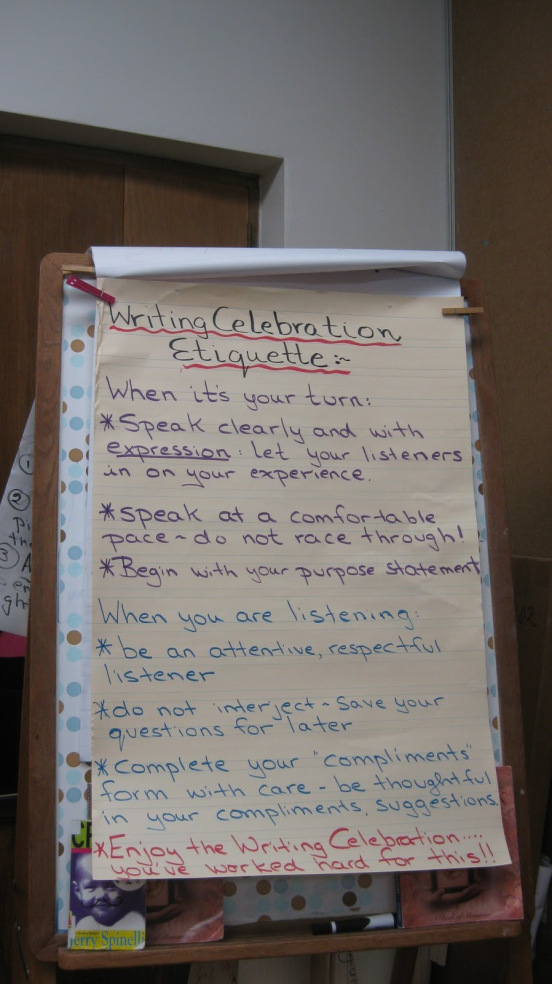 Writing Celebration
Etiquette:~
When it's your turn:
*Speak clearly and with
expression: let your listeners
in on your experience.
*speak at a comfortable
pace ~ do not race through!
*Begin with your purpose statement
When you are listening:
* be an attentive, respectful
listener
*do not interject ~ save your
questions for later
* Complete your "compliments"
form with care - be thoughtful
in your compliments, suggestions.
*Enjoy the Writing Celebration....
you've worked hard for this!!
Jerry Spinelli